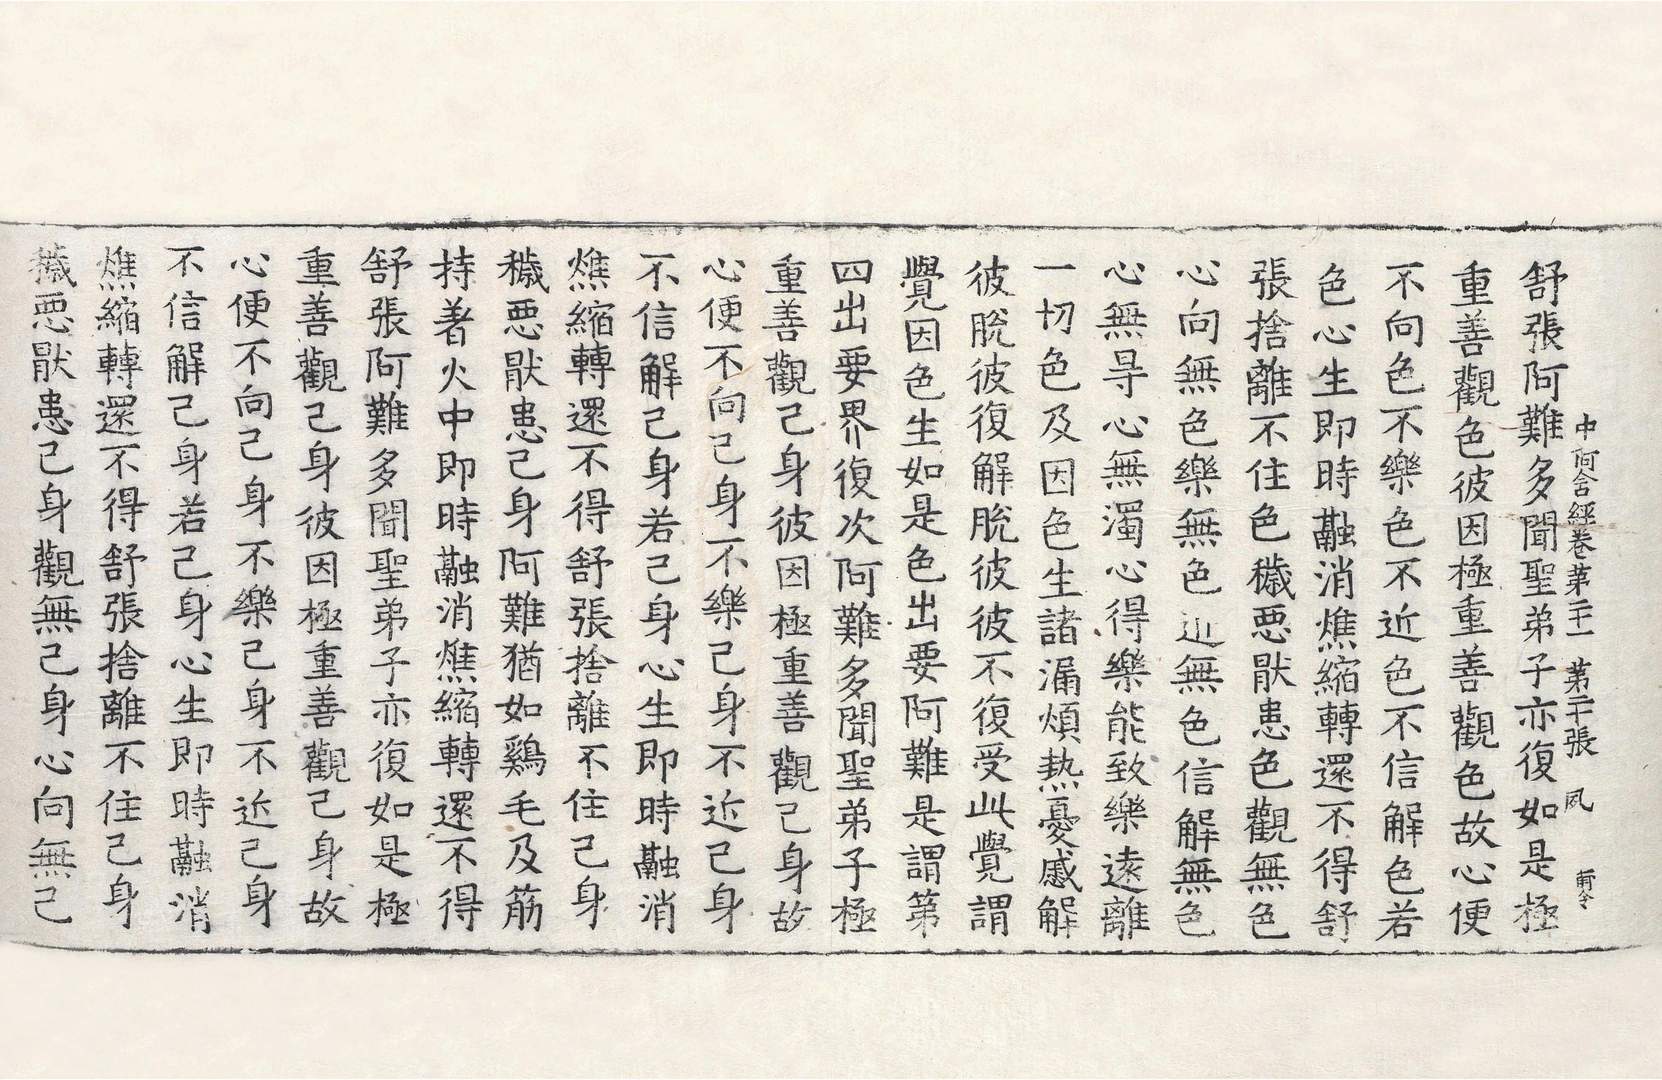 中阿含經卷第二十一 第二十張 夙
舒張阿難多聞聖弟子亦復如是極
重善觀色彼因極重善觀色故心便
不向色不樂色不近色不信解色若
色心生即時融消燋縮轉還不得舒
張捨離不住色穢悪猒患色觀無色
心向無色樂無色近無色信解無色
心無㝵心無濁心得樂能致樂遠離
一切色及因色生諸漏煩熱憂慼解
彼脫彼復解脫彼彼不復受此覺謂
覺因色生如是色出要阿難是謂第
四出要界復次阿難多聞聖弟子極
重善觀己身彼因極重善觀己身故
心便不向己身不樂己身不近己身
不信解己身若己身心生即時融消
燋縮轉還不得舒張捨離不住己身
穢悪猒患己身阿難猶如鷄毛及筋
持著火中即時融消燋縮轉還不得
舒張阿難多聞聖弟子亦復如是極
重善觀己身彼因極重善觀己身故
心便不向己身不樂己身不近己身
不信解己身若己身心生即時融消
燋縮轉還不得舒張捨離不住己身
穢悪猒患己身觀無己身心向無己